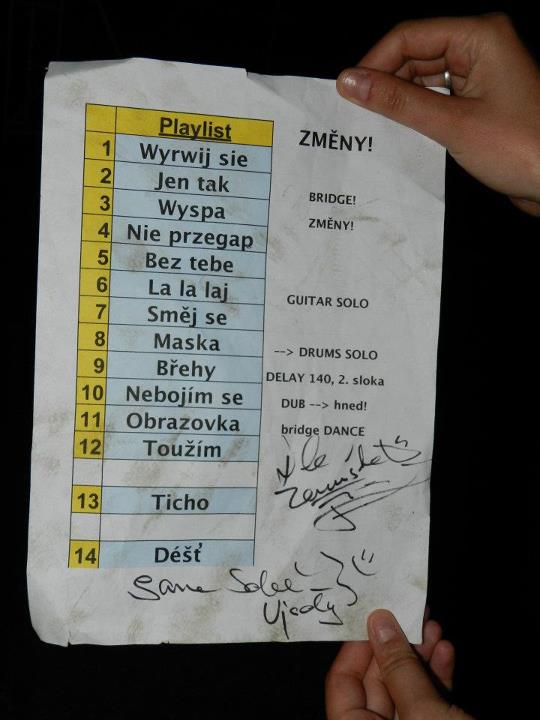 Playlist
ZMĚNY!
1 Wyrwij sie
2 Jen tak
3 Wyspa BRIDGE!
4 Nie przegap ZMĚNY!
5 Bez tebe
6 La la laj
7 Směj se GUITAR SOLO
8 Maska
9 Břehy --> DRUMS SOLO
10 Nebojím se DELAY 140, 2. sloka
11 Obrazovka DUB --> hned!
12 Toužím bridge DANCE
13 Ticho
14 Déšť